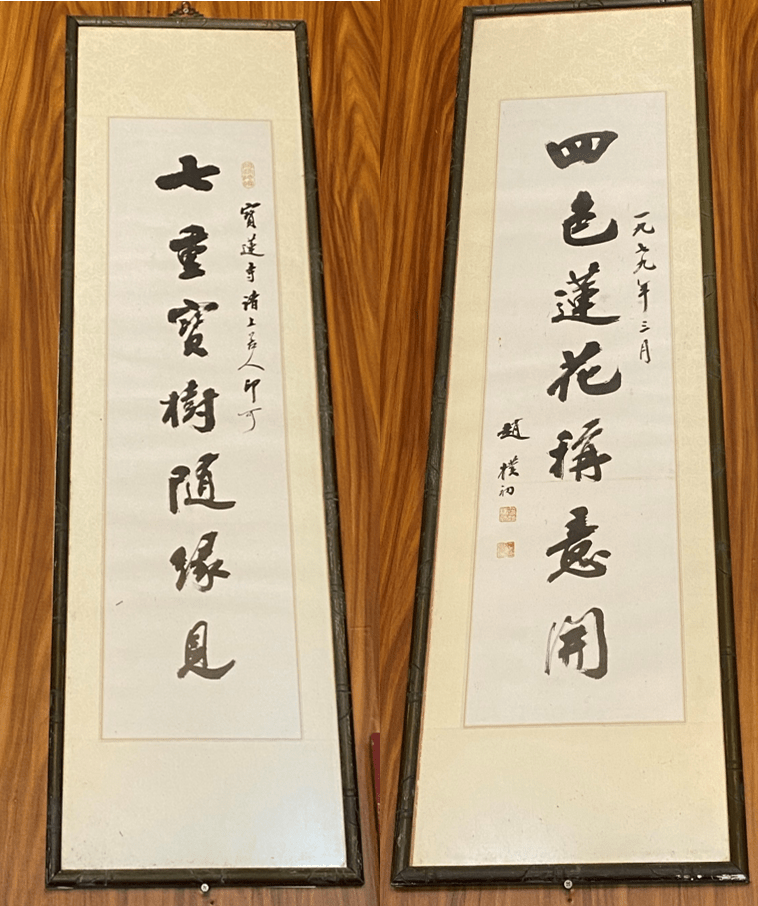 七重寶樹隨緣見
寶蓮寺諸上善人印可
四色蓮花稱意開
一九七九年三月
趙樸初